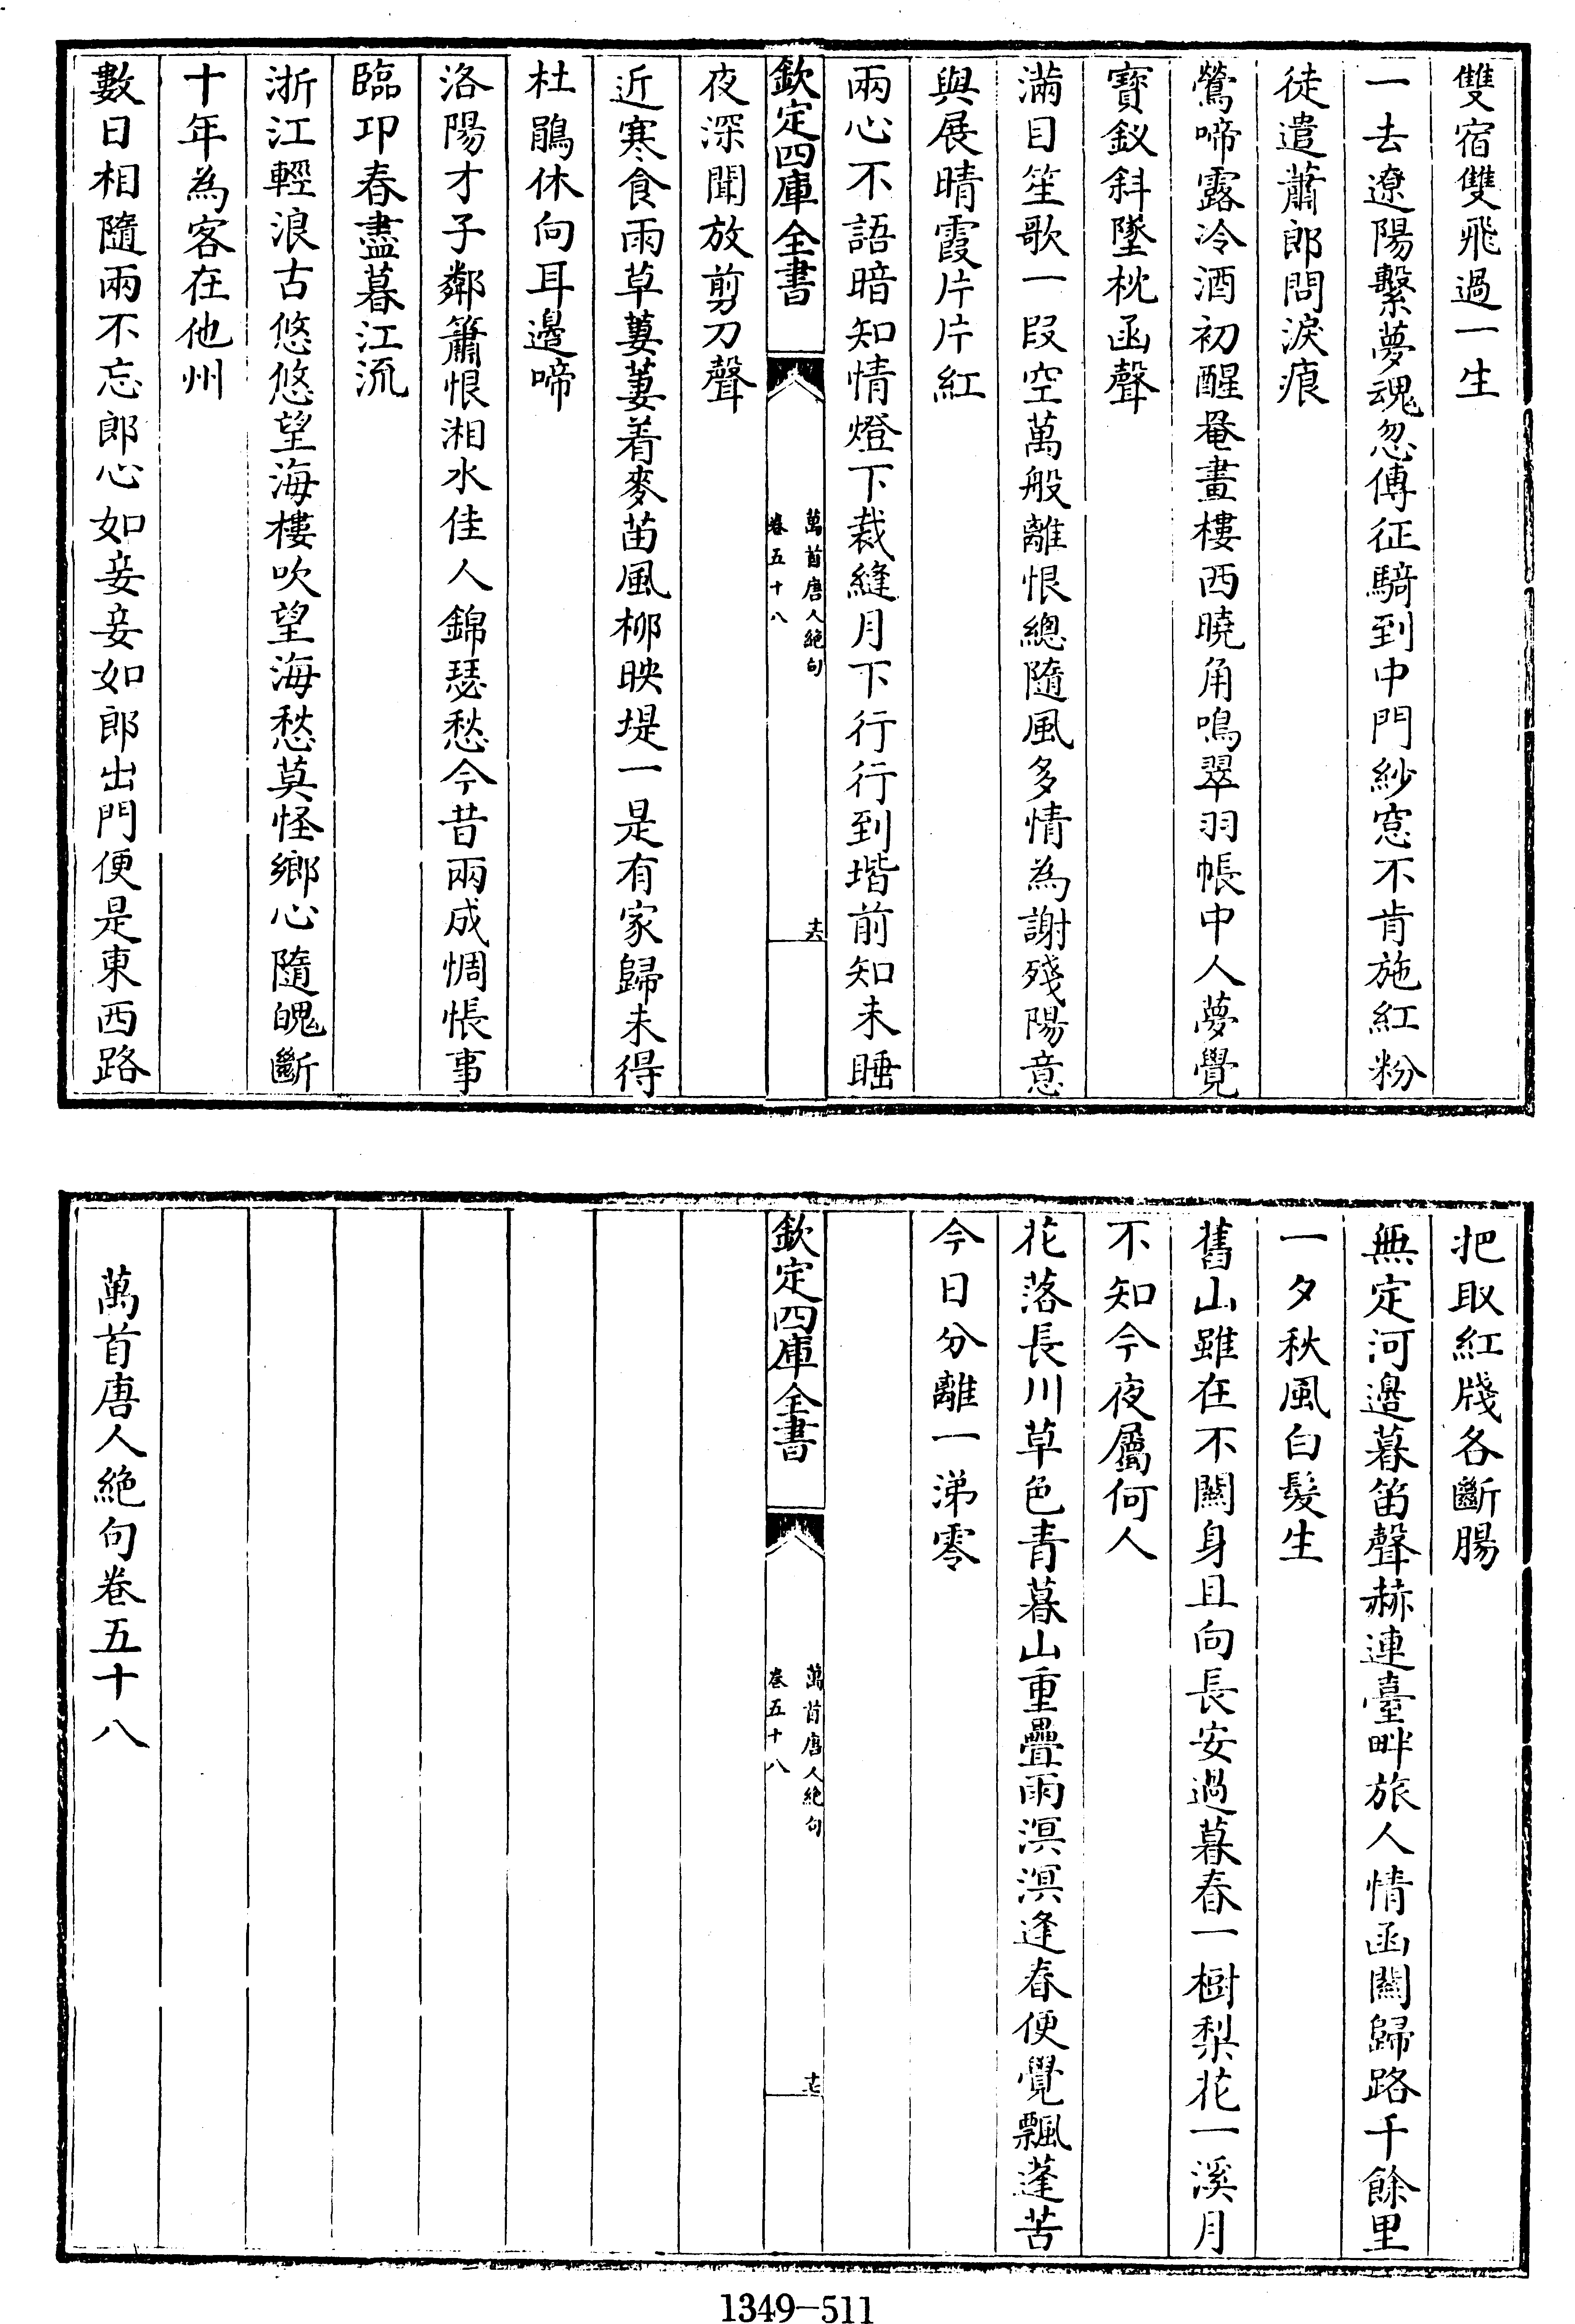 雙宿雙飛過一生
一去遼陽繫夢魂忽傳征騎到中門紗窓不肯施紅粉
徒遣蕭郎問淚痕
鶯啼露冷酒初醒罨畫樓西曉角鳴翠羽帳中人夢覺
寳釵斜墜枕函聲
滿目笙歌一段空萬般離恨總隨風多情為謝殘陽意
與展晴霞片片紅
兩心不語暗知情燈下裁縫月下行行到堦前知未睡
欽定四庫全書
萬首唐人絶句
卷五十八
十六
夜深聞放剪刀聲
近寒食雨草萋萋着麥苗風柳映堤一是有家歸未得
杜鵑休向耳邊啼
洛陽才子鄰簫恨湘水佳人錦瑟愁今昔兩成惆悵事
臨卭春盡暮江流
浙江輕浪古悠悠望海樓吹望海愁莫怪鄉心隨魄斷
十年為客在他州
數日相隨兩不忘郎心如妾妾如郎出門便是東西路
把取紅牋各斷腸
無定河邊暮笛聲赫連臺畔旅人情函關歸路千餘里
一夕秋風白髮生
舊山雖在不關身且向長安過暮春一樹梨花一溪月
不知今夜屬何人
花落長川草色青暮山重疊雨溟溟逢春便覺飄蓬苦
今日分離一涕零
欽定四庫全書
萬首唐人絶句
卷五十八
十七
萬首唐人絶句卷五十八
1349-511